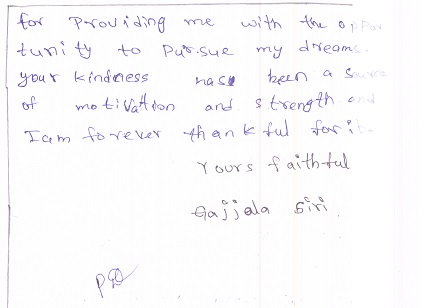 for Providing me with the oppor
tunity to Pursue my dreams.
your kindness has been a Source
of motivation and strength and
I am forever thankful for it.
Yours faithful
Gajjala Siri.